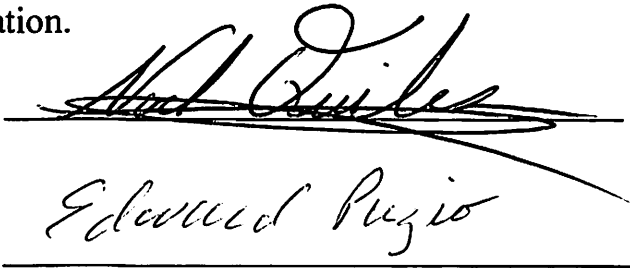 ation.
Quiles
Edward Puzio